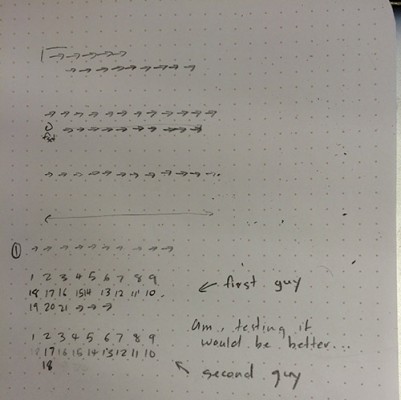 ①
1 2 3 4 5 6 7 8 9
18 17 16 15 14 13 12 11 10
19 20 21
first guy
am, testing it
would be better...
1 2 3 4 5 6 7 8 9
17 16 15 14 13 12 11 10
18
second guy